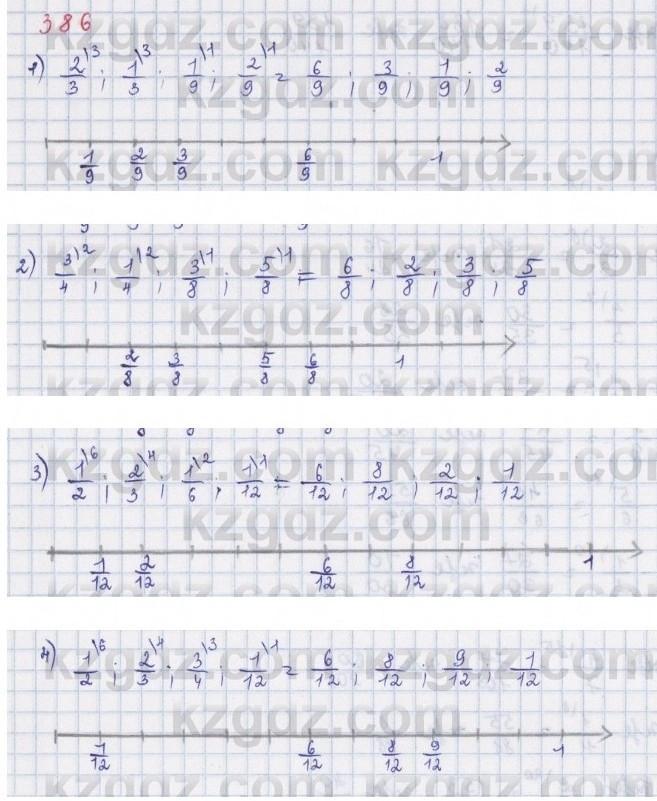 386
1) 2/3\3 ; 1/3\3 ; 1/9\1 ; 2/9\1 = 6/9 ; 3/9 ; 1/9 ; 2/9
1/9 2/9 3/9 6/9 1
2) 3/4\2 ; 1/4\2 ; 3/8\1 ; 5/8\1 = 6/8 ; 2/8 ; 3/8 ; 5/8
2/8 3/8 5/8 6/8 1
3) 1/2\6 ; 2/3\4 ; 1/6\2 ; 1/12\1 = 6/12 ; 8/12 ; 2/12 ; 1/12
1/12 2/12 6/12 8/12 1
4) 1/2\6 ; 2/3\4 ; 3/4\3 ; 1/12\1 = 6/12 ; 8/12 ; 9/12 ; 1/12
1/12 6/12 8/12 9/12 1
kzgdz.com